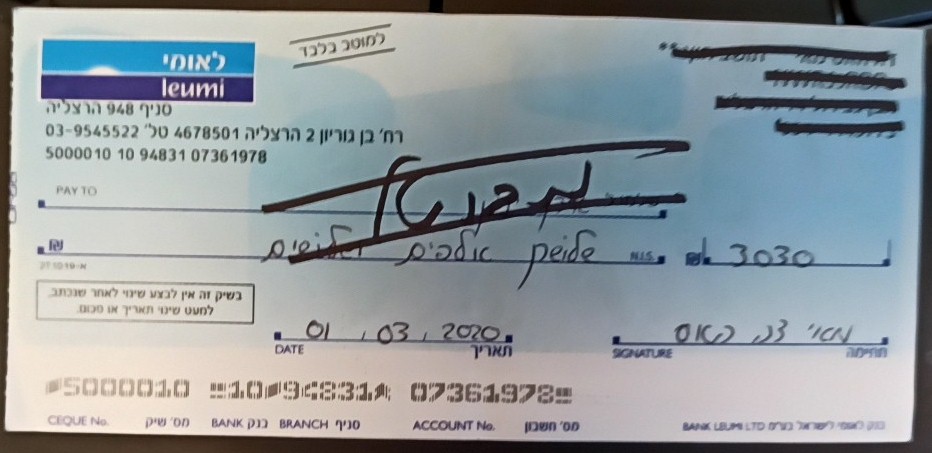 לאומי
leumi
למוטב בלבד
סניף 948 הרצליה
רח' בן גוריון 2 הרצליה 4678501 טל' 03-9545522
5000010 10 94831 07361978
**
PAY TO
מבוטל
₪ שלושת אלפים שלושים N.I.S. ₪ 3030
27.10.19-א
בשיק זה אין לבצע שינוי לאחר שנכתב,
למעט שינוי תאריך או סכום.
01.03.2020
DATE תאריך
SIGNATURE חתימה
5000010 10 94831 07361978
CEQUE No. מס' שיק BANK בנק BRANCH סניף ACCOUNT No. מס' חשבון BANK LEUMI LTD בנק לאומי לישראל בע"מ